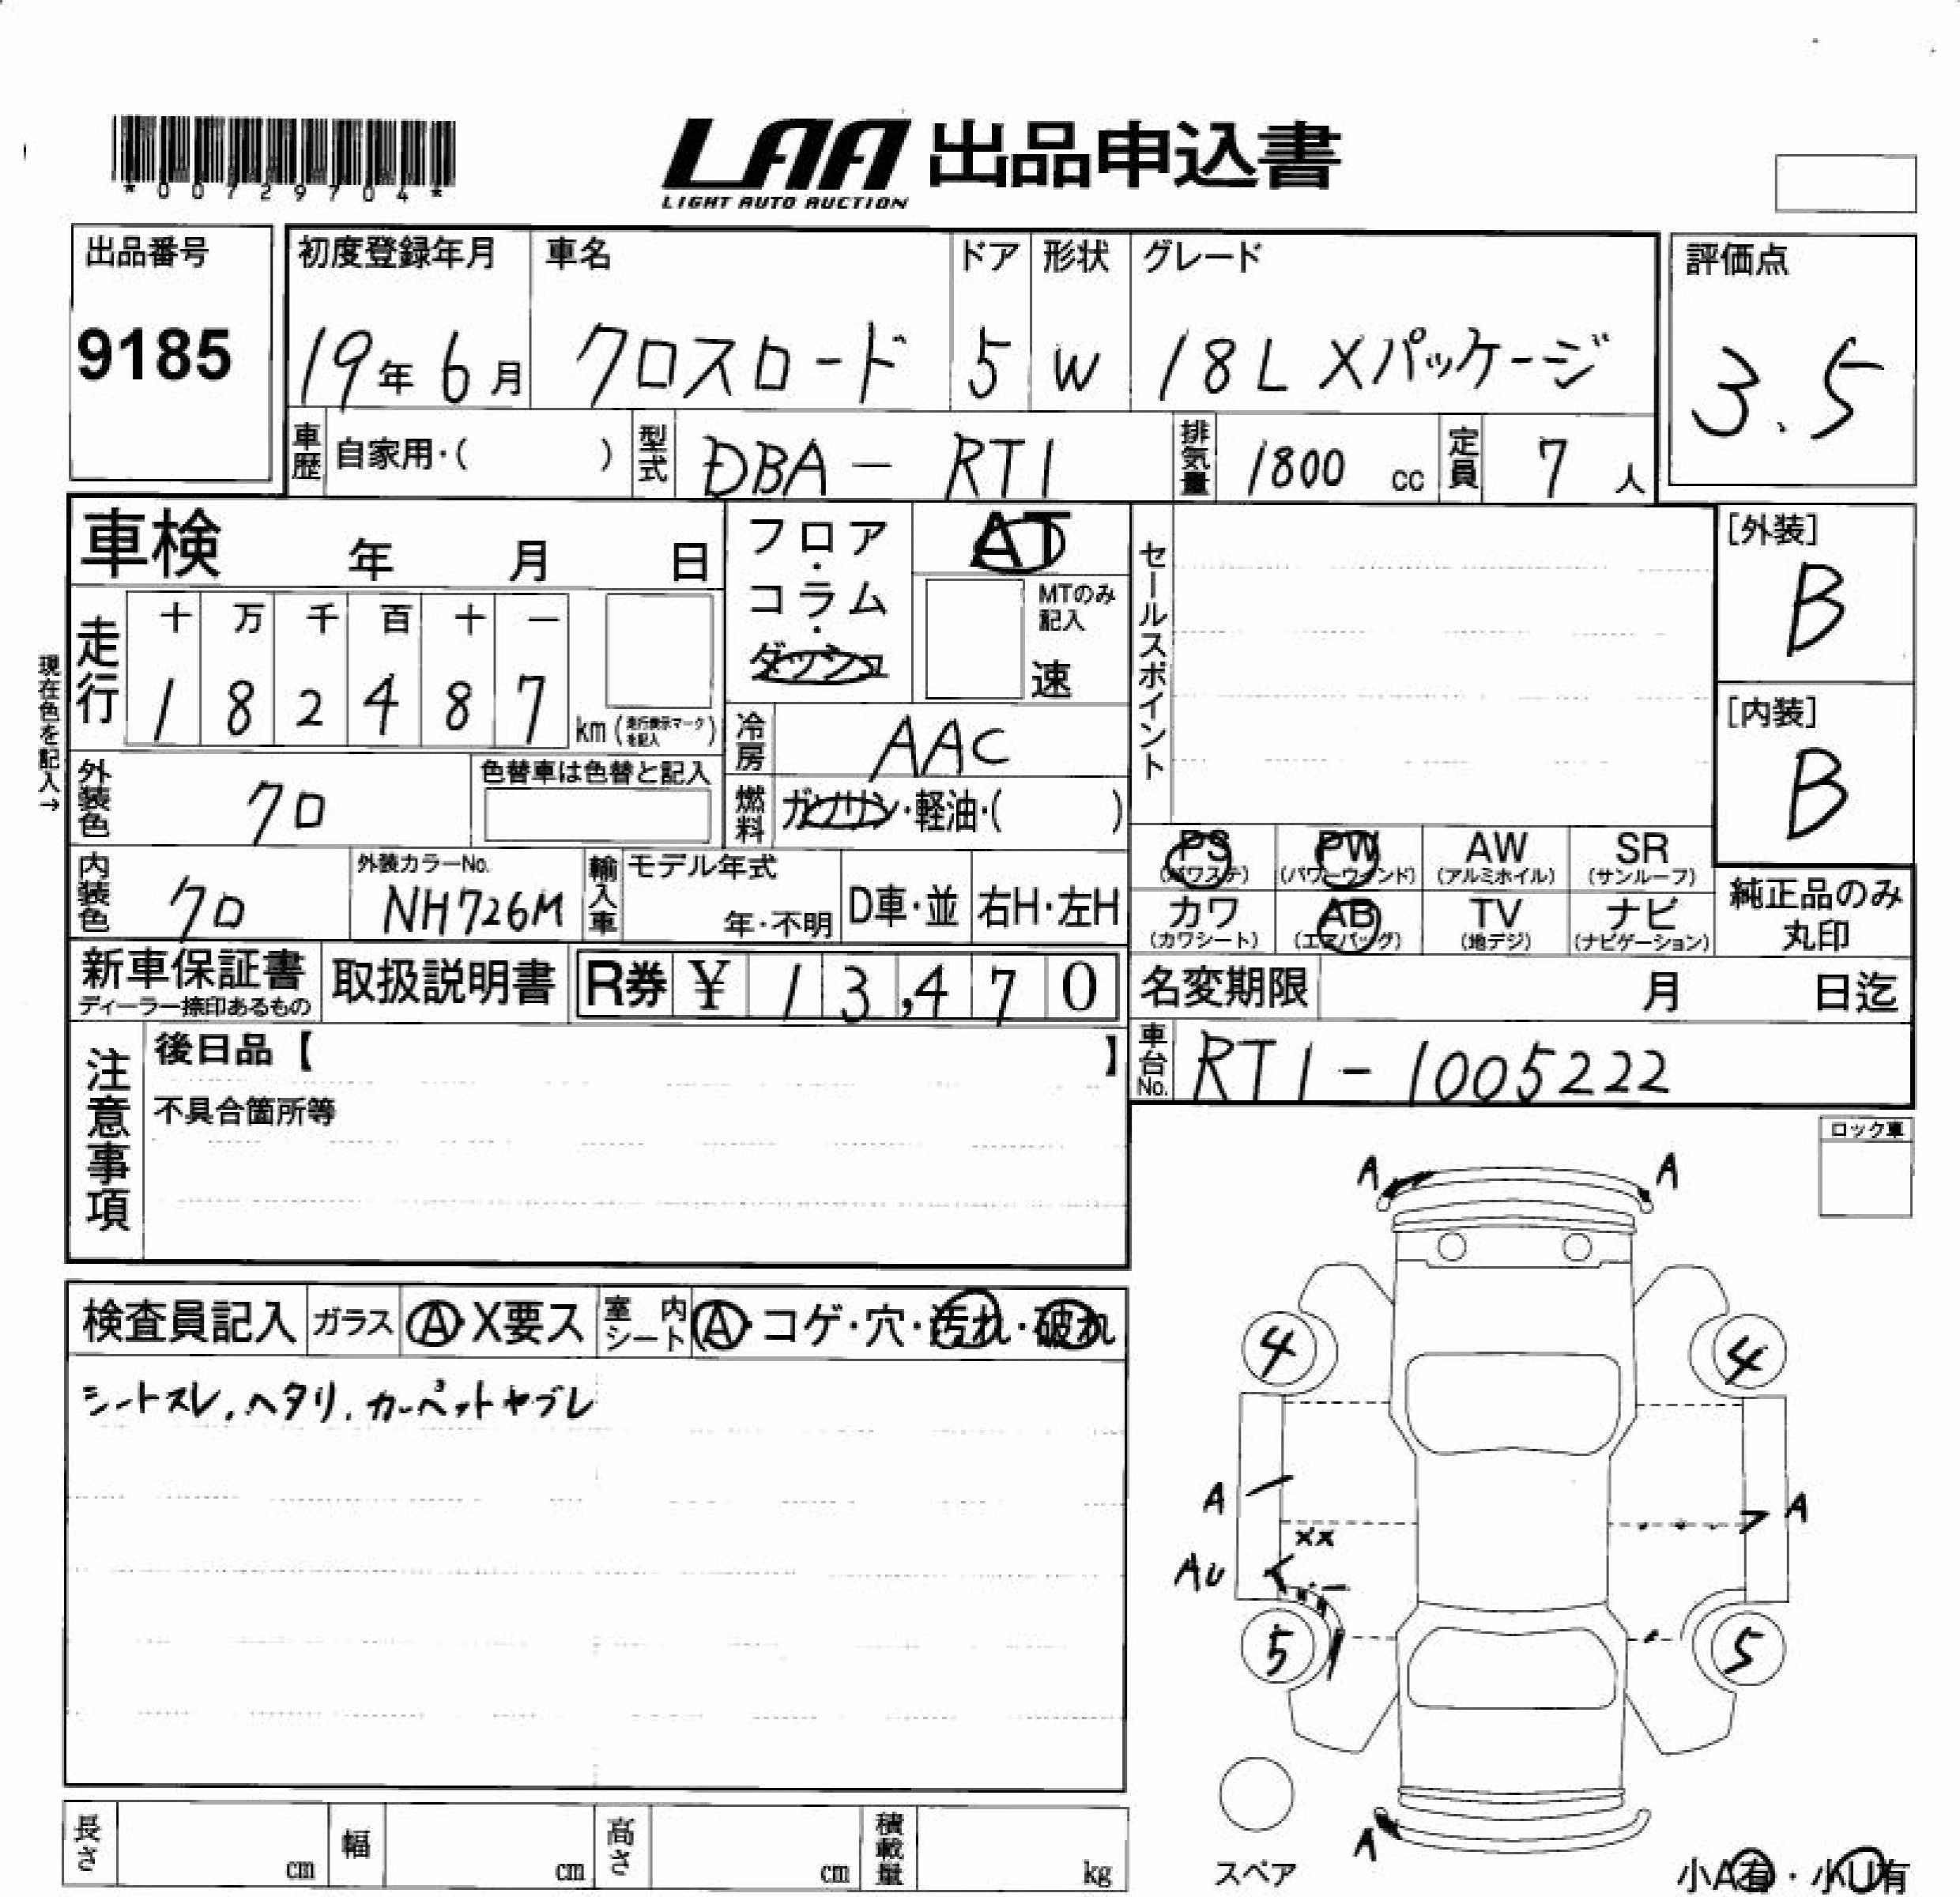 *00729704*
LAA 出品申込書
LIGHT AUTO AUCTION
出品番号 9185
初度登録年月 19年6月
車名 クロスロード
ドア 5
形状 W
グレード 18L Xパッケージ
評価点 3.5
車歴 自家用・( )
型式 DBA-RT1
排気量 1800 cc
定員 7 人
車検 年 月 日
フロア・コラム・ダッシュ
AT
MTのみ記入 速
セールスポイント
[外装] B
[内装] B
現在色を記入→
走行 十 万 千 百 十 一
1 8 2 4 8 7 km(走行表示マークを記入)
冷房 AAC
外装色 クロ
色替車は色替と記入
燃料 ガソリン・軽油・( )
PS (パワステ) PW (パワーウインド) AW (アルミホイル) SR (サンルーフ)
内装色 クロ
外装カラーNo. NH726M
輸入車 モデル年式 年・不明 D車・並 右H・左H
カワ (カワシート) AB (エアバッグ) TV (地デジ) ナビ (ナビゲーション)
純正品のみ丸印
新車保証書 ディーラー捺印あるもの
取扱説明書
R券 ¥ 13,470
名変期限 月 日迄
注意事項
後日品【 】
不具合箇所等
車台No. RT1-1005222
ロック車
検査員記入 ガラス A・X要ス 室内シート A・コゲ・穴・汚れ・破れ
シートスレ、ヘタリ、カーペットヤブレ
A A
4 4
A A
XX
AU
5 5
A
スペア
小A有・小U有
長さ cm 幅 cm 高さ cm 積載量 kg